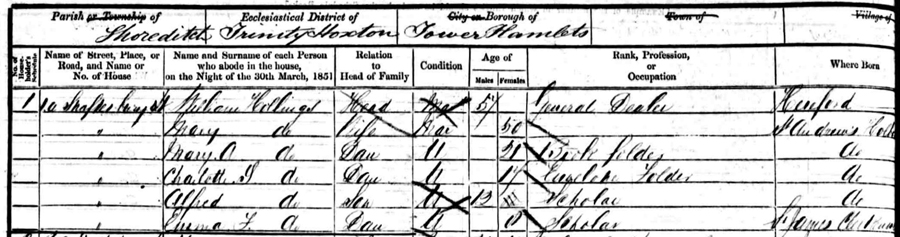 Parish or Township of Ecclesiastical District of City or Borough of Town of Village of
Shoreditch Trinity Hoxton Tower Hamlets
No. of House- holder's Schedule Name of Street, Place, or Road, and Name or No. of House Name and Surname of each Person who abode in the house, on the Night of the 30th March, 1851 Relation to Head of Family Condition Age of Males Females Rank, Profession, or Occupation Where Born
1 Shaftesbury St William Hollings Head Mar 57 General Dealer Hereford
" Mary do Wife Mar 50 St Andrews
" Mary A do Dau U 21 Book folder do
" Charlotte do Dau U 17 Envelope Folder do
" Alfred do Son U 13 Scholar do
" Emma do Dau U Scholar St James